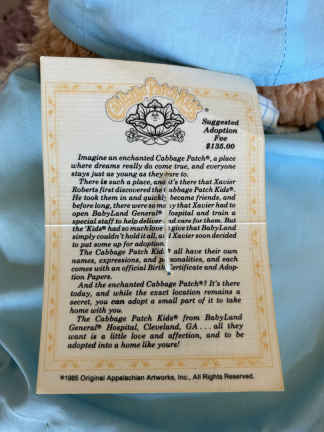 Cabbage Patch Kids®
Suggested
Adoption
Fee
$135.00
Imagine an enchanted Cabbage Patch®, a place
where dreams really do come true, and everyone
stays just as young as they care to.
There is such a place, and it's there that Xavier
Roberts first discovered the Cabbage Patch Kids®.
He took them in and quickly became friends, and
before long, there were so many that Xavier had to
open BabyLand General® Hospital and train a
special staff to help deliver and care for them. But
the 'Kids® had so much love to give that BabyLand
simply couldn't hold it all, and Xavier soon decided
to put some up for adoption.
The Cabbage Patch Kids® all have their own
names, expressions, and personalities, and each
comes with an official Birth Certificate and Adop-
tion Papers.
And the enchanted Cabbage Patch®? It's there
today, and while the exact location remains a
secret, you can adopt a small part of it to take
home with you.
The Cabbage Patch Kids® from BabyLand
General® Hospital, Cleveland, GA . . . all they
want is a little love and affection, and to be
adopted into a home like yours!
©1985 Original Appalachian Artworks, Inc., All Rights Reserved.